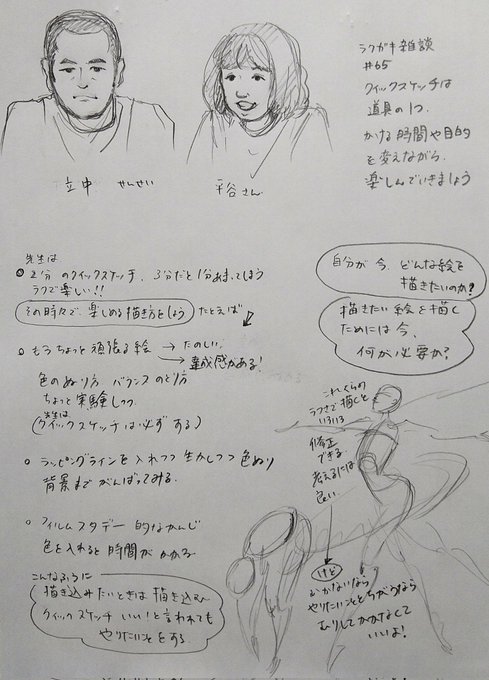 ラクガキ雑談
#65
クイックスケッチは
道具の1つ.
かける時間や目的
を変えながら.
楽しんでいきましょう
立中 せんせい
平谷さん
先生は
2分のクイックスケッチ、3分だと1分あまってしまう
ラフで楽しい!!
その時々で、楽しめる描き方をしよう たとえば
もうちょっと頑張る絵 → たのしい
→ 達成感がある!
色のぬり方 バランスのとり方
ちょっと実験しつつ
先生は
(クイックスケッチは必ずする)
ラッピングラインを入れつつ生かしつつ色ぬり
背景までがんばってみる.
フィルムスタデー的なかんじ
色を入れると時間がかかる
こんなふうに
描き込みたいときは描き込む
クイックスケッチいい!と言われても
やりたいことをする
自分が今、どんな絵を
描きたいのか?
描きたい絵を描く
ためには今、
何が必要か?
これくらの
ラフさで描くと
いろいろ
修正
できる.
考えるには
良い.
けど
むかないなら
やりたいこととちがうなら
むりしてかかなくて
いいよ!